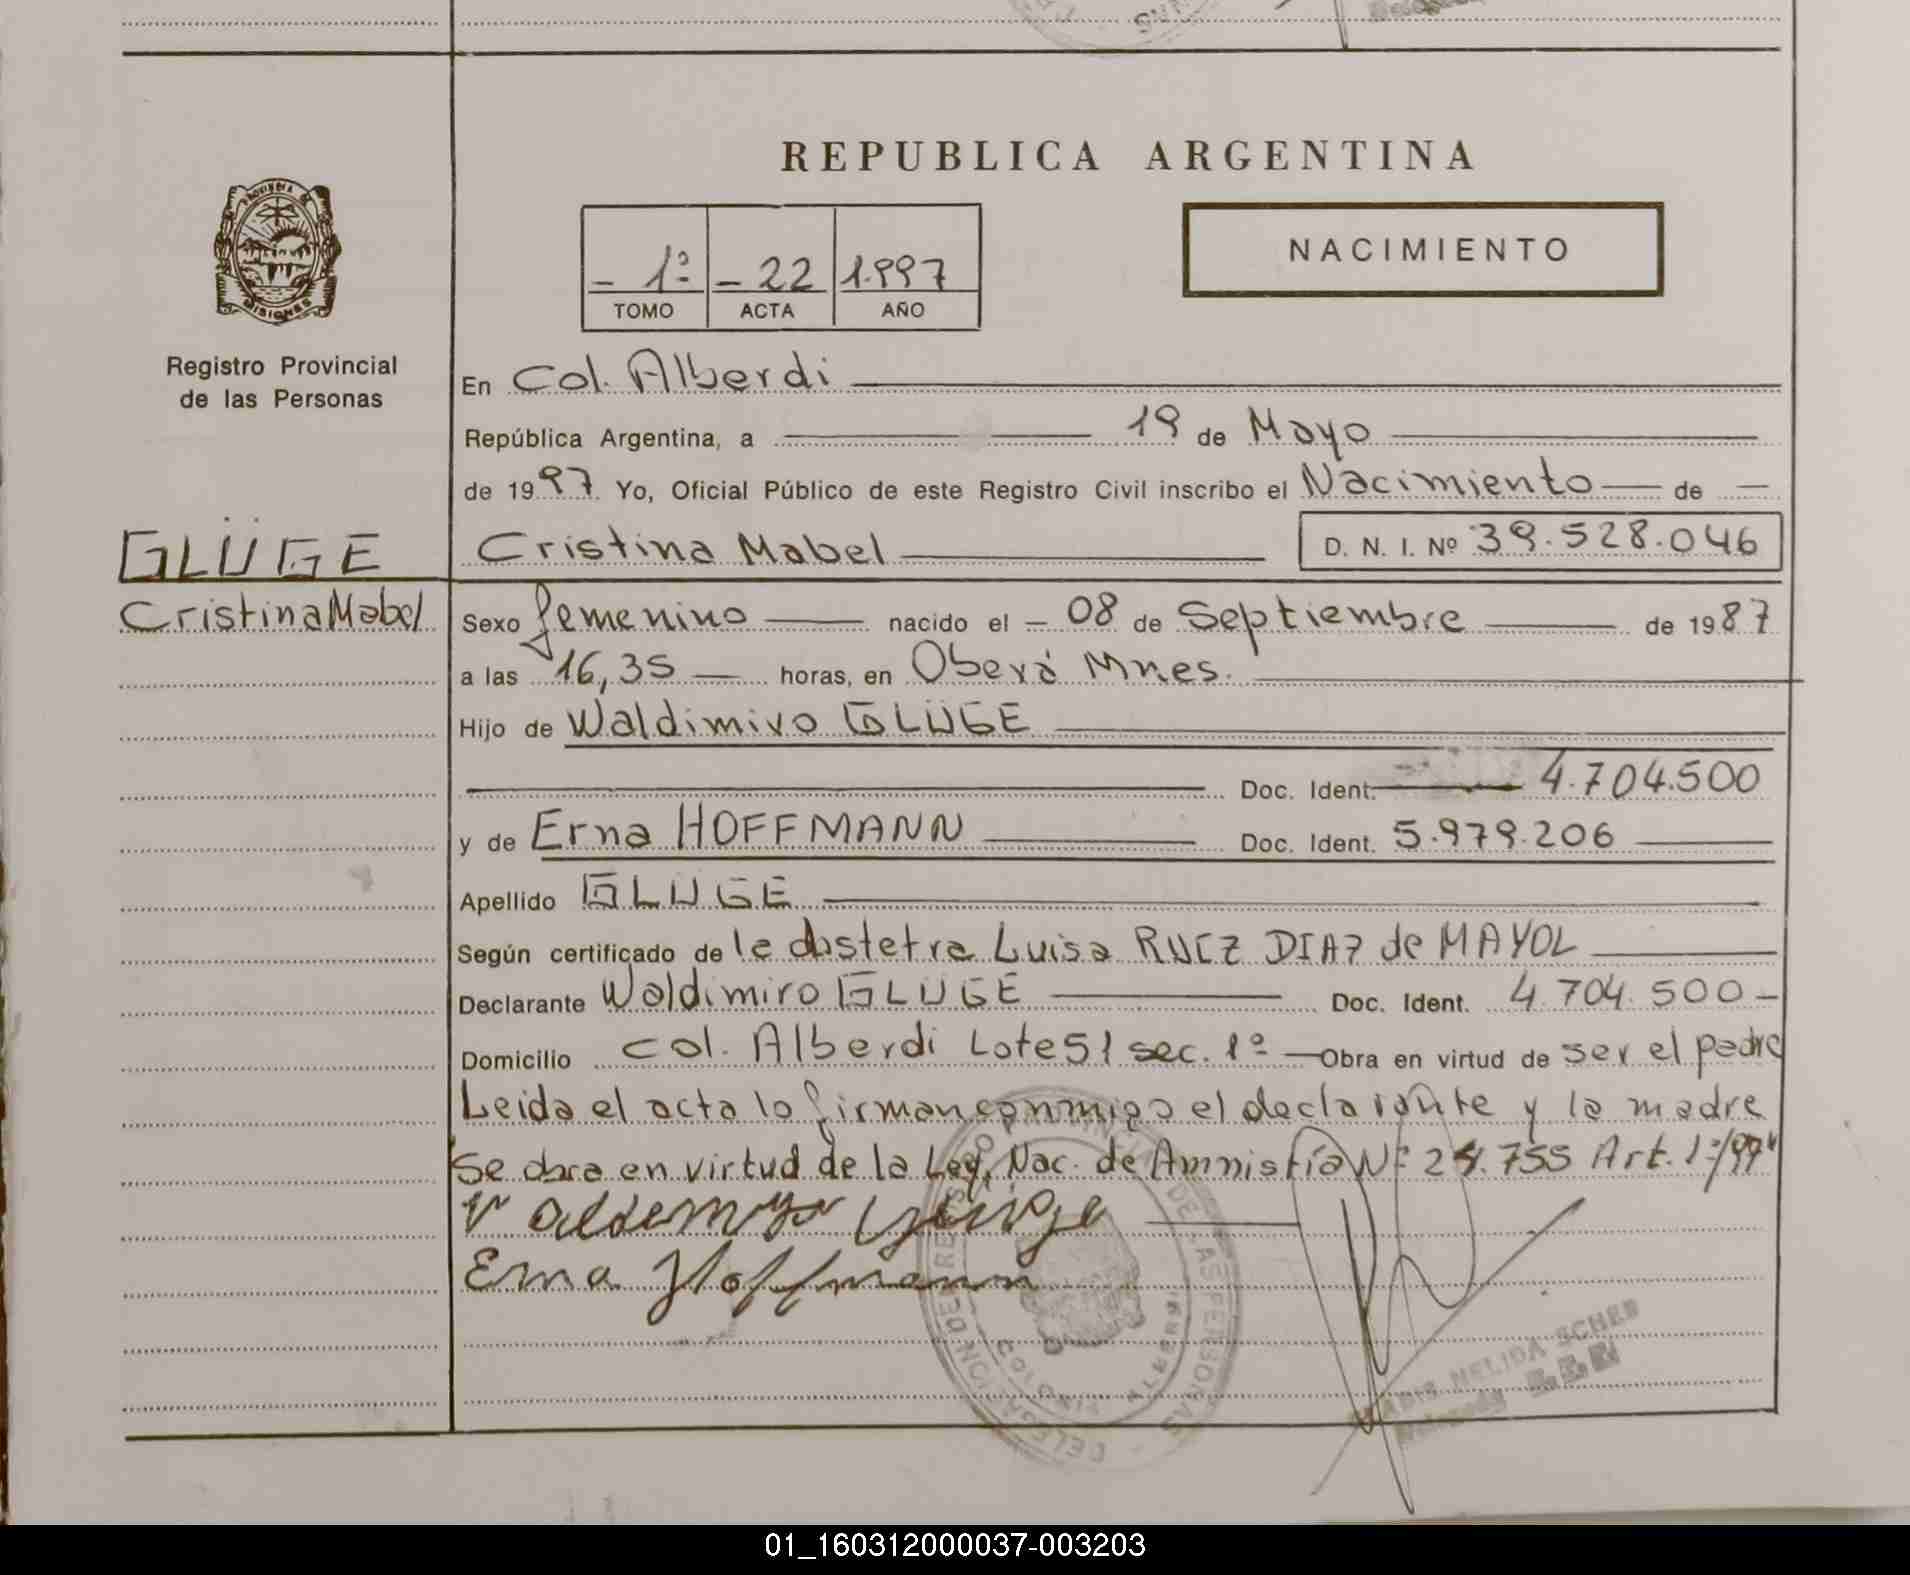 REPUBLICA ARGENTINA
PROVINCIA DE
MISIONES
Registro Provincial
de las Personas
- 1º - 22 1.997
TOMO ACTA AÑO
NACIMIENTO
En Col. Alberdi
República Argentina, a 19 de Mayo
de 1997 Yo, Oficial Público de este Registro Civil inscribo el Nacimiento de
GLÜGE
Cristina Mabel
Cristina Mabel D. N. I. Nº 39.528.046
Sexo femenino nacido el - 08 de Septiembre de 1987
a las 16,35 horas, en Oberá Mnes.
Hijo de Waldimiro GLÜGE
Doc. Ident. 4.704.500
y de Erna HOFFMANN Doc. Ident. 5.979.206
Apellido GLÜGE
Según certificado de la obstetra Luisa RUIZ DIAZ de MAYOL
Declarante Waldimiro GLÜGE Doc. Ident. 4.704.500-
Domicilio Col. Alberdi Lote 51 sec. 1º Obra en virtud de ser el padre
Leida el acta lo firman conmigo el declarante y la madre
Se obra en virtud de la Ley, Nac. de Amnistía Nº 24.755 Art. 1º/97
Erna Hoffmann
DELEGACION DEL REGISTRO PROVINCIAL DE LAS PERSONAS
COLONIA ALBERDI
NELIDA SCHER
01_160312000037-003203